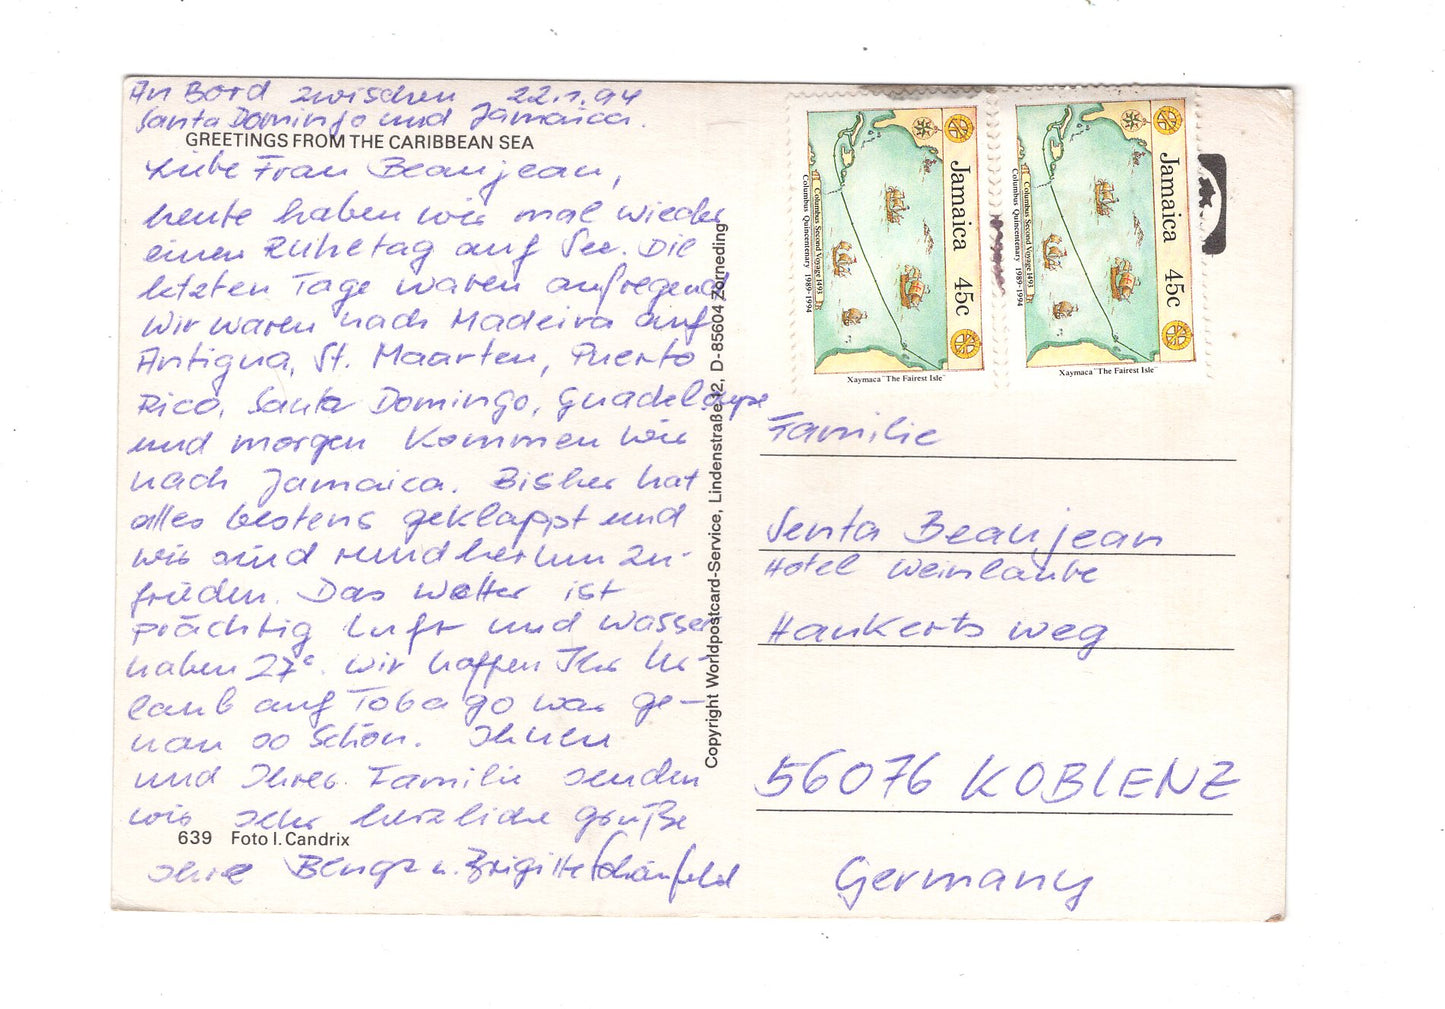 An Bord zwischen 22.1.94
Santa Domingo und Jamaica.
GREETINGS FROM THE CARIBBEAN SEA
Liebe Frau Beaujean,
heute haben wir mal wieder
einen Ruhetag auf See. Die
letzten Tage waren aufregend
wir waren nach Madeira auf
Antigua, St. Maarten, Puerto
Rico, Santa Domingo, Guadeloupe
und morgen kommen wir
nach Jamaica. Bisher hat
alles bestens geklappt und
wir sind rundherum zu-
frieden. Das Wetter ist
prächtig Luft und Wasser
haben 27° wir hoffen Ihr Ur-
laub auf Tobago war ge-
nau so schön. Ihnen
und Ihrer Familie senden
wir sehr herzliche Grüße
639 Foto I. Candrix
Ihre u. Brigitte Schönfeld
Copyright Worldpostcard-Service, Lindenstraße 12, D-85604 Zorneding
Jamaica 45c
Columbus Second Voyage 1493
Columbus Quincentenary 1989-1994
Xaymaca "The Fairest Isle"
Jamaica 45c
Columbus Second Voyage 1493
Columbus Quincentenary 1989-1994
Xaymaca "The Fairest Isle"
Familie
Senta Beaujean
Hotel Weinlaube
Hankerts weg
56076 KOBLENZ
Germany